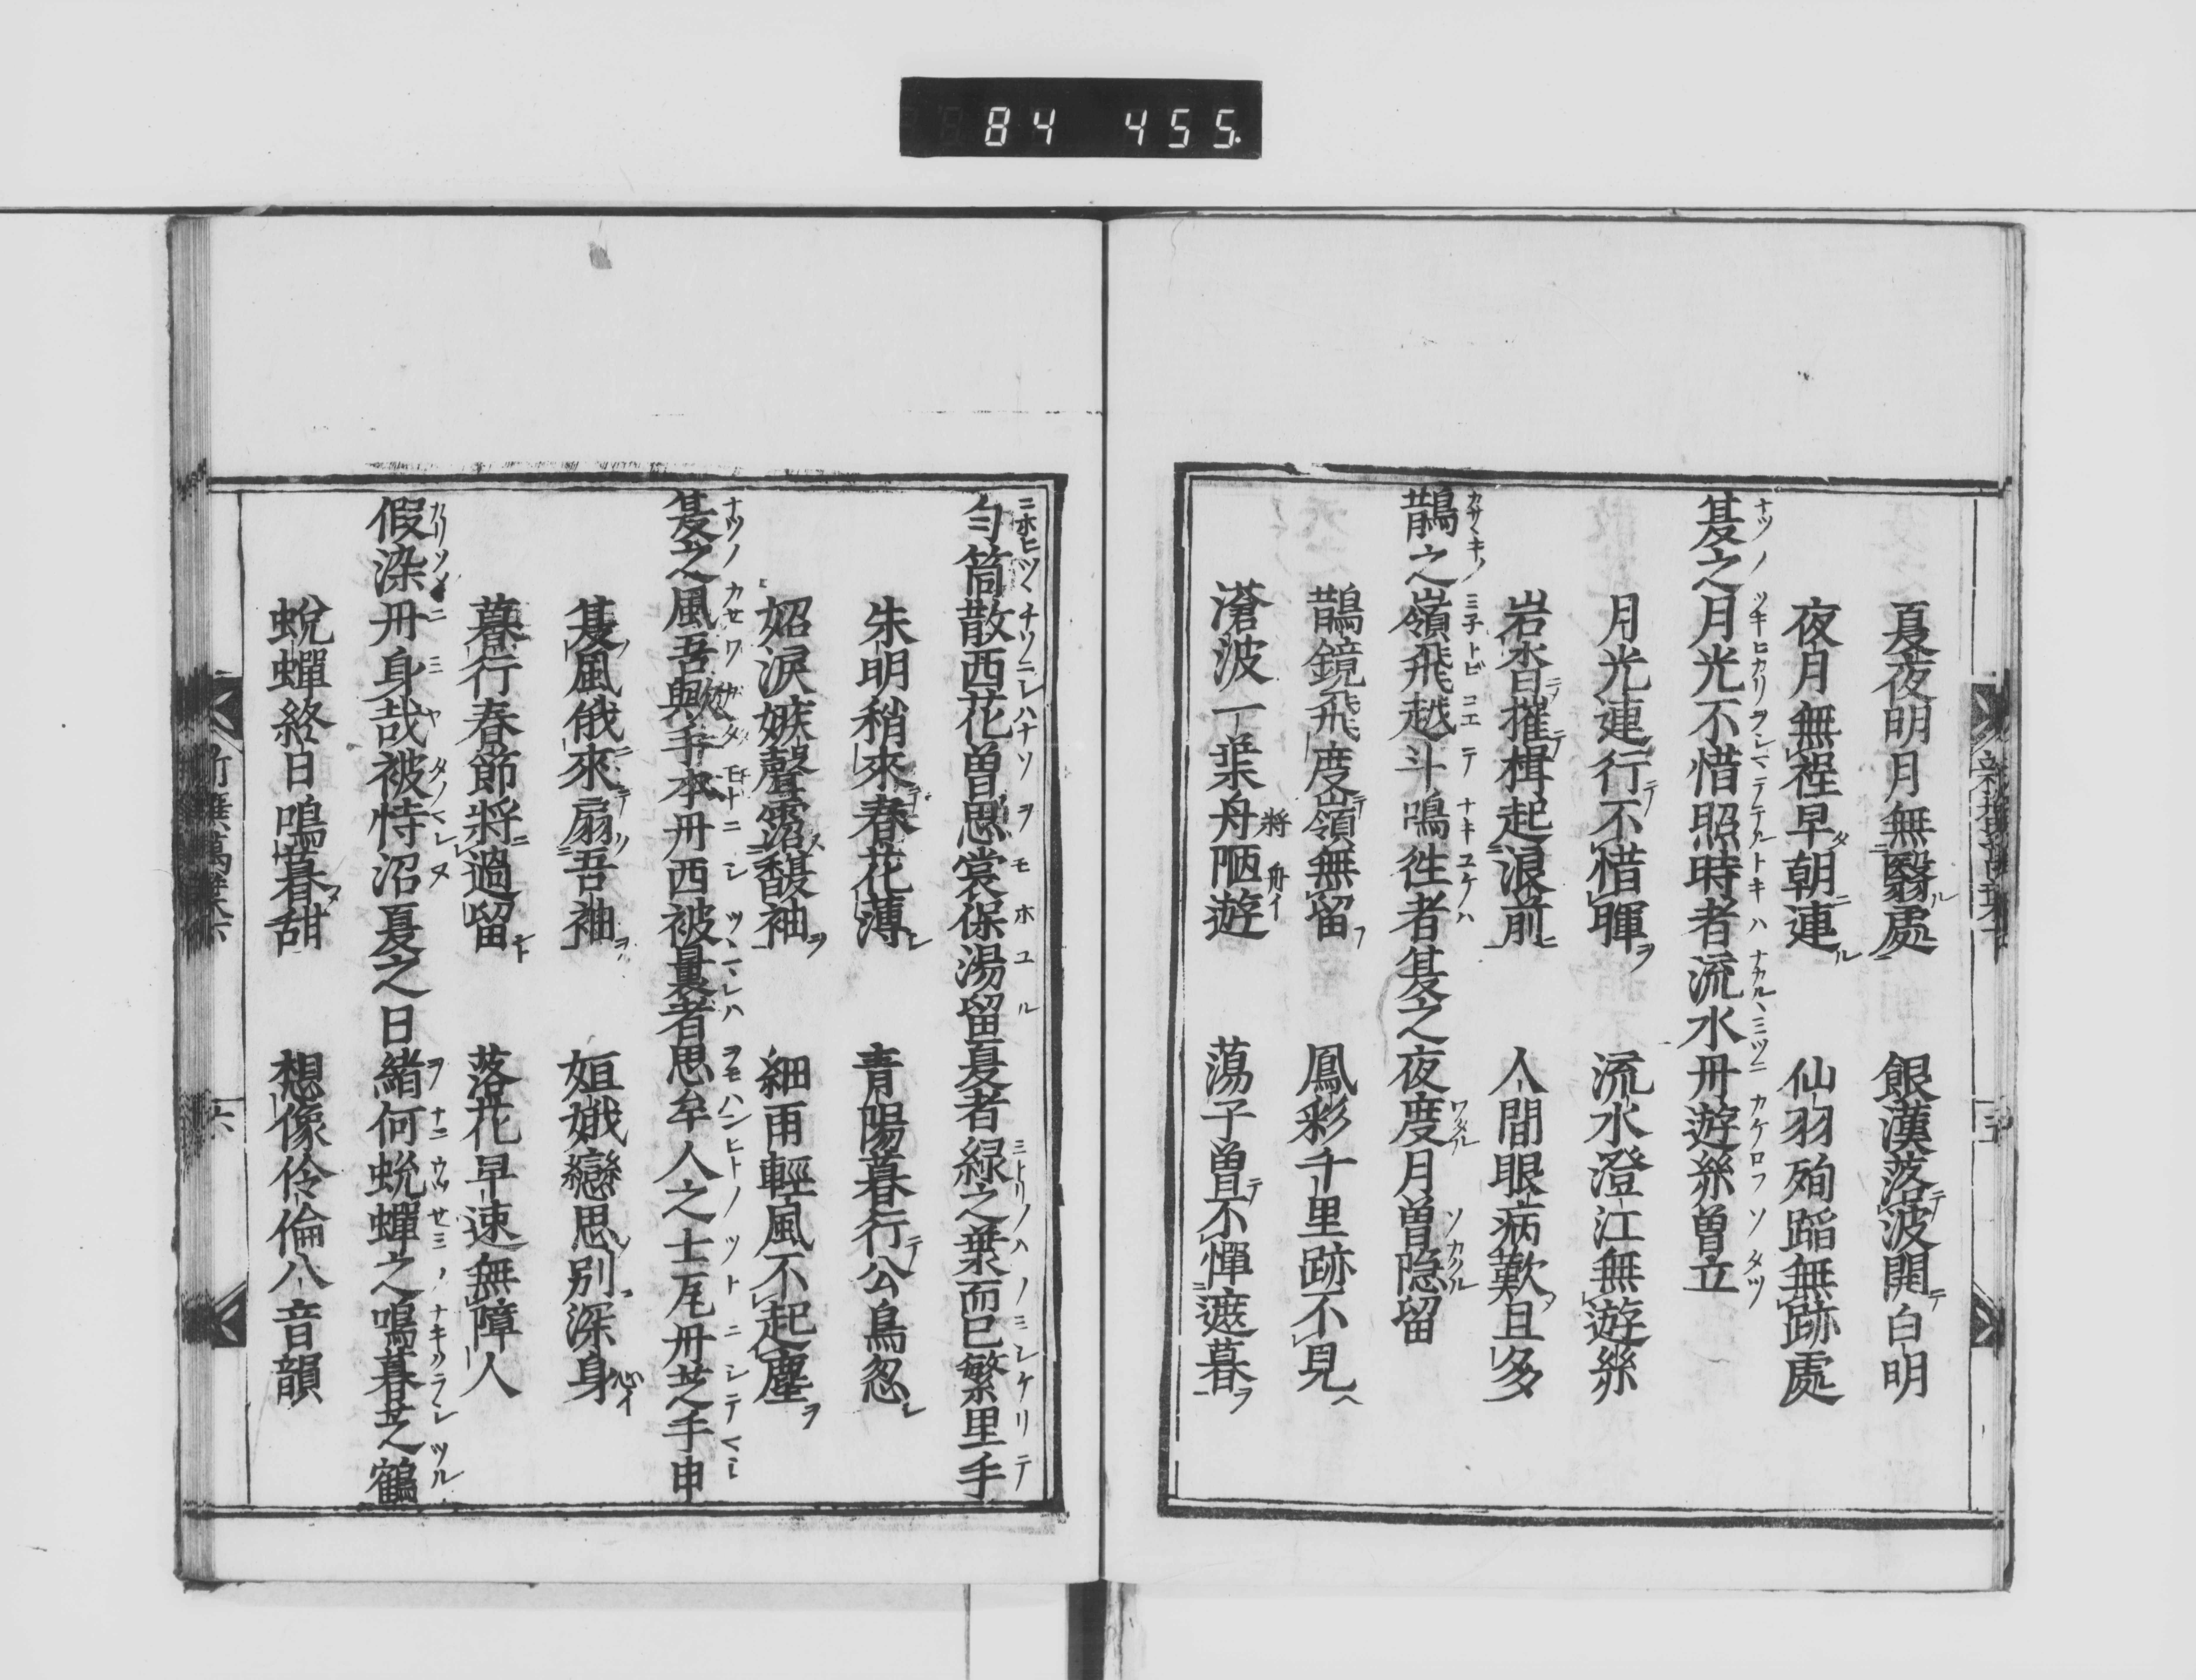 84 455
夏夜明月無翳處 銀漢落波開白明
夜月無程早朝連 仙羽殉蹈無跡處
夏之月光不惜照時者流水丹遊絲曽立
月光連行不惜暉 流水澄江無遊絲
岩杳摧楫起浪前 人間眼病歎且多
鵲之嶺飛越斗鳴徃者夏之夜度月曽隠留
鵲鏡飛度嶺無留 鳳彩千里跡不見
滄波一葉舟陋遊 蕩子曽不憚遮暮
匂筒散西花曽思裳保湯留夏者緑之葉而已繁里手
朱明稍來春花薄 青陽暮行公鳥忽
妱涙嫉聲霑馥袖 細雨輕風不起塵
夏之風吾歟手本丹西被裹者思牟人之士瓲丹芝手申
夏風俄來扇吾袖 姮娥戀思別深身
暮行春節將過留 落花早速無障人
假染丹身哉被恃沼夏之日緒何蛻蟬之鳴暮芝鶴
蛻蟬終日鳴暮甜 想像伶倫八音韻
六